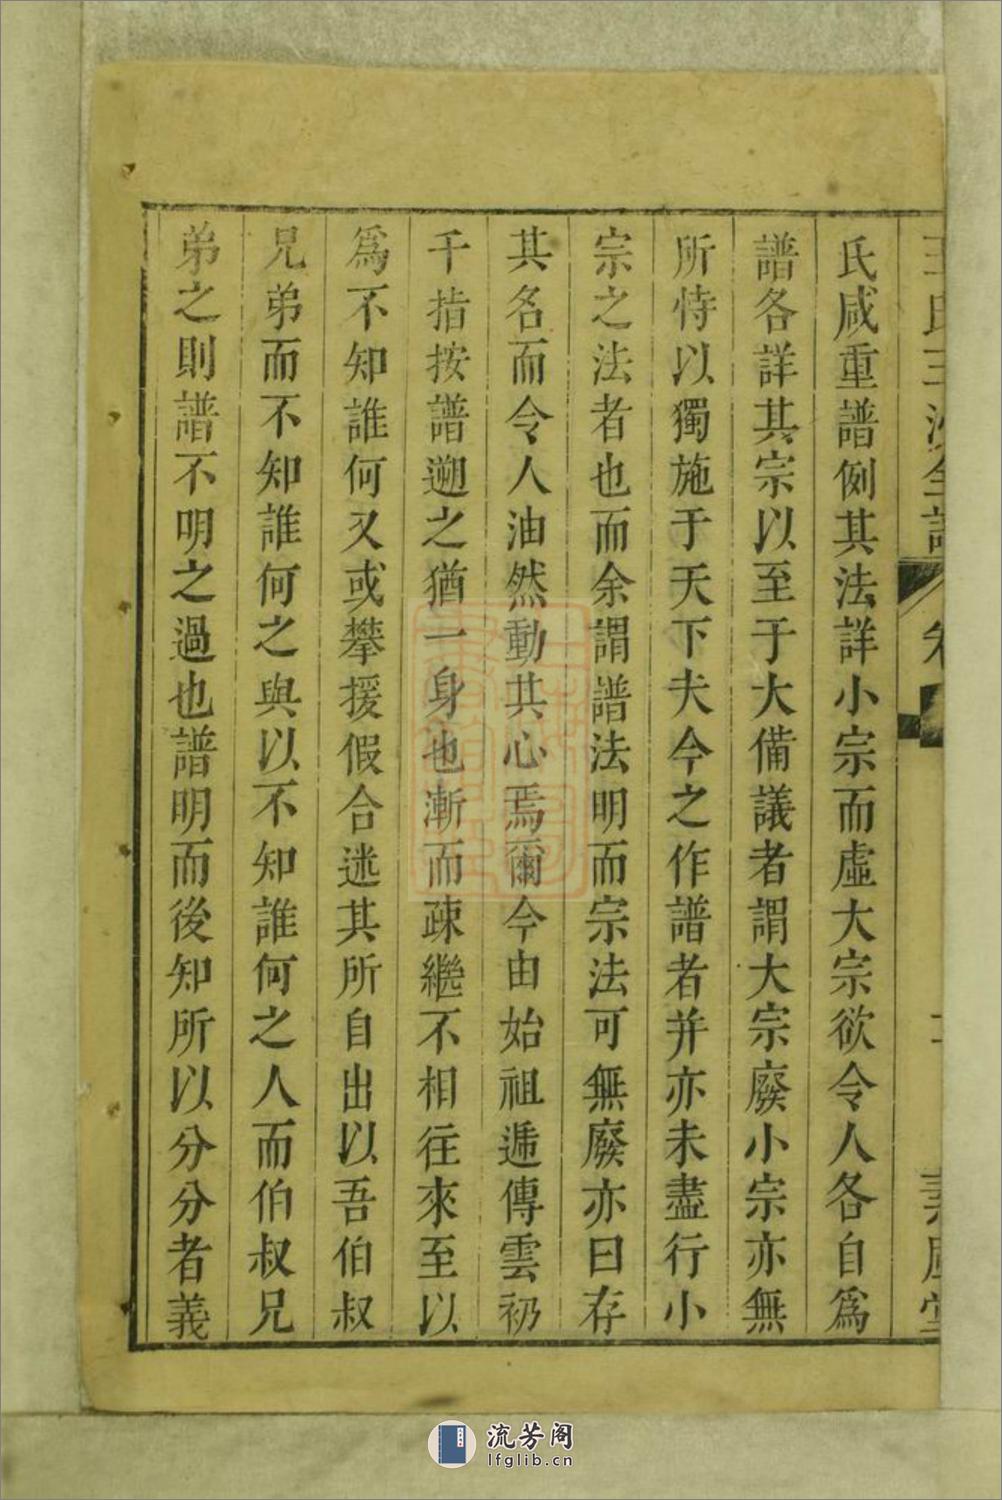 王氏三沙全譜
卷
氏咸重譜例其法詳小宗而虛大宗欲令人各自爲
譜各詳其宗以至于大備議者謂大宗廢小宗亦無
所恃以獨施于天下夫今之作譜者并亦未盡行小
宗之法者也而余謂譜法明而宗法可無廢亦曰存
其名而令人油然動其心焉爾今由始祖遞傳雲礽
千指按譜遡之猶一身也漸而疎繼不相往來至以
爲不知誰何又或攀援假合迷其所自出以吾伯叔
兄弟而不知誰何之與以不知誰何之人而伯叔兄
弟之則譜不明之過也譜明而後知所以分分者義
流芳阁
lfglib.cn